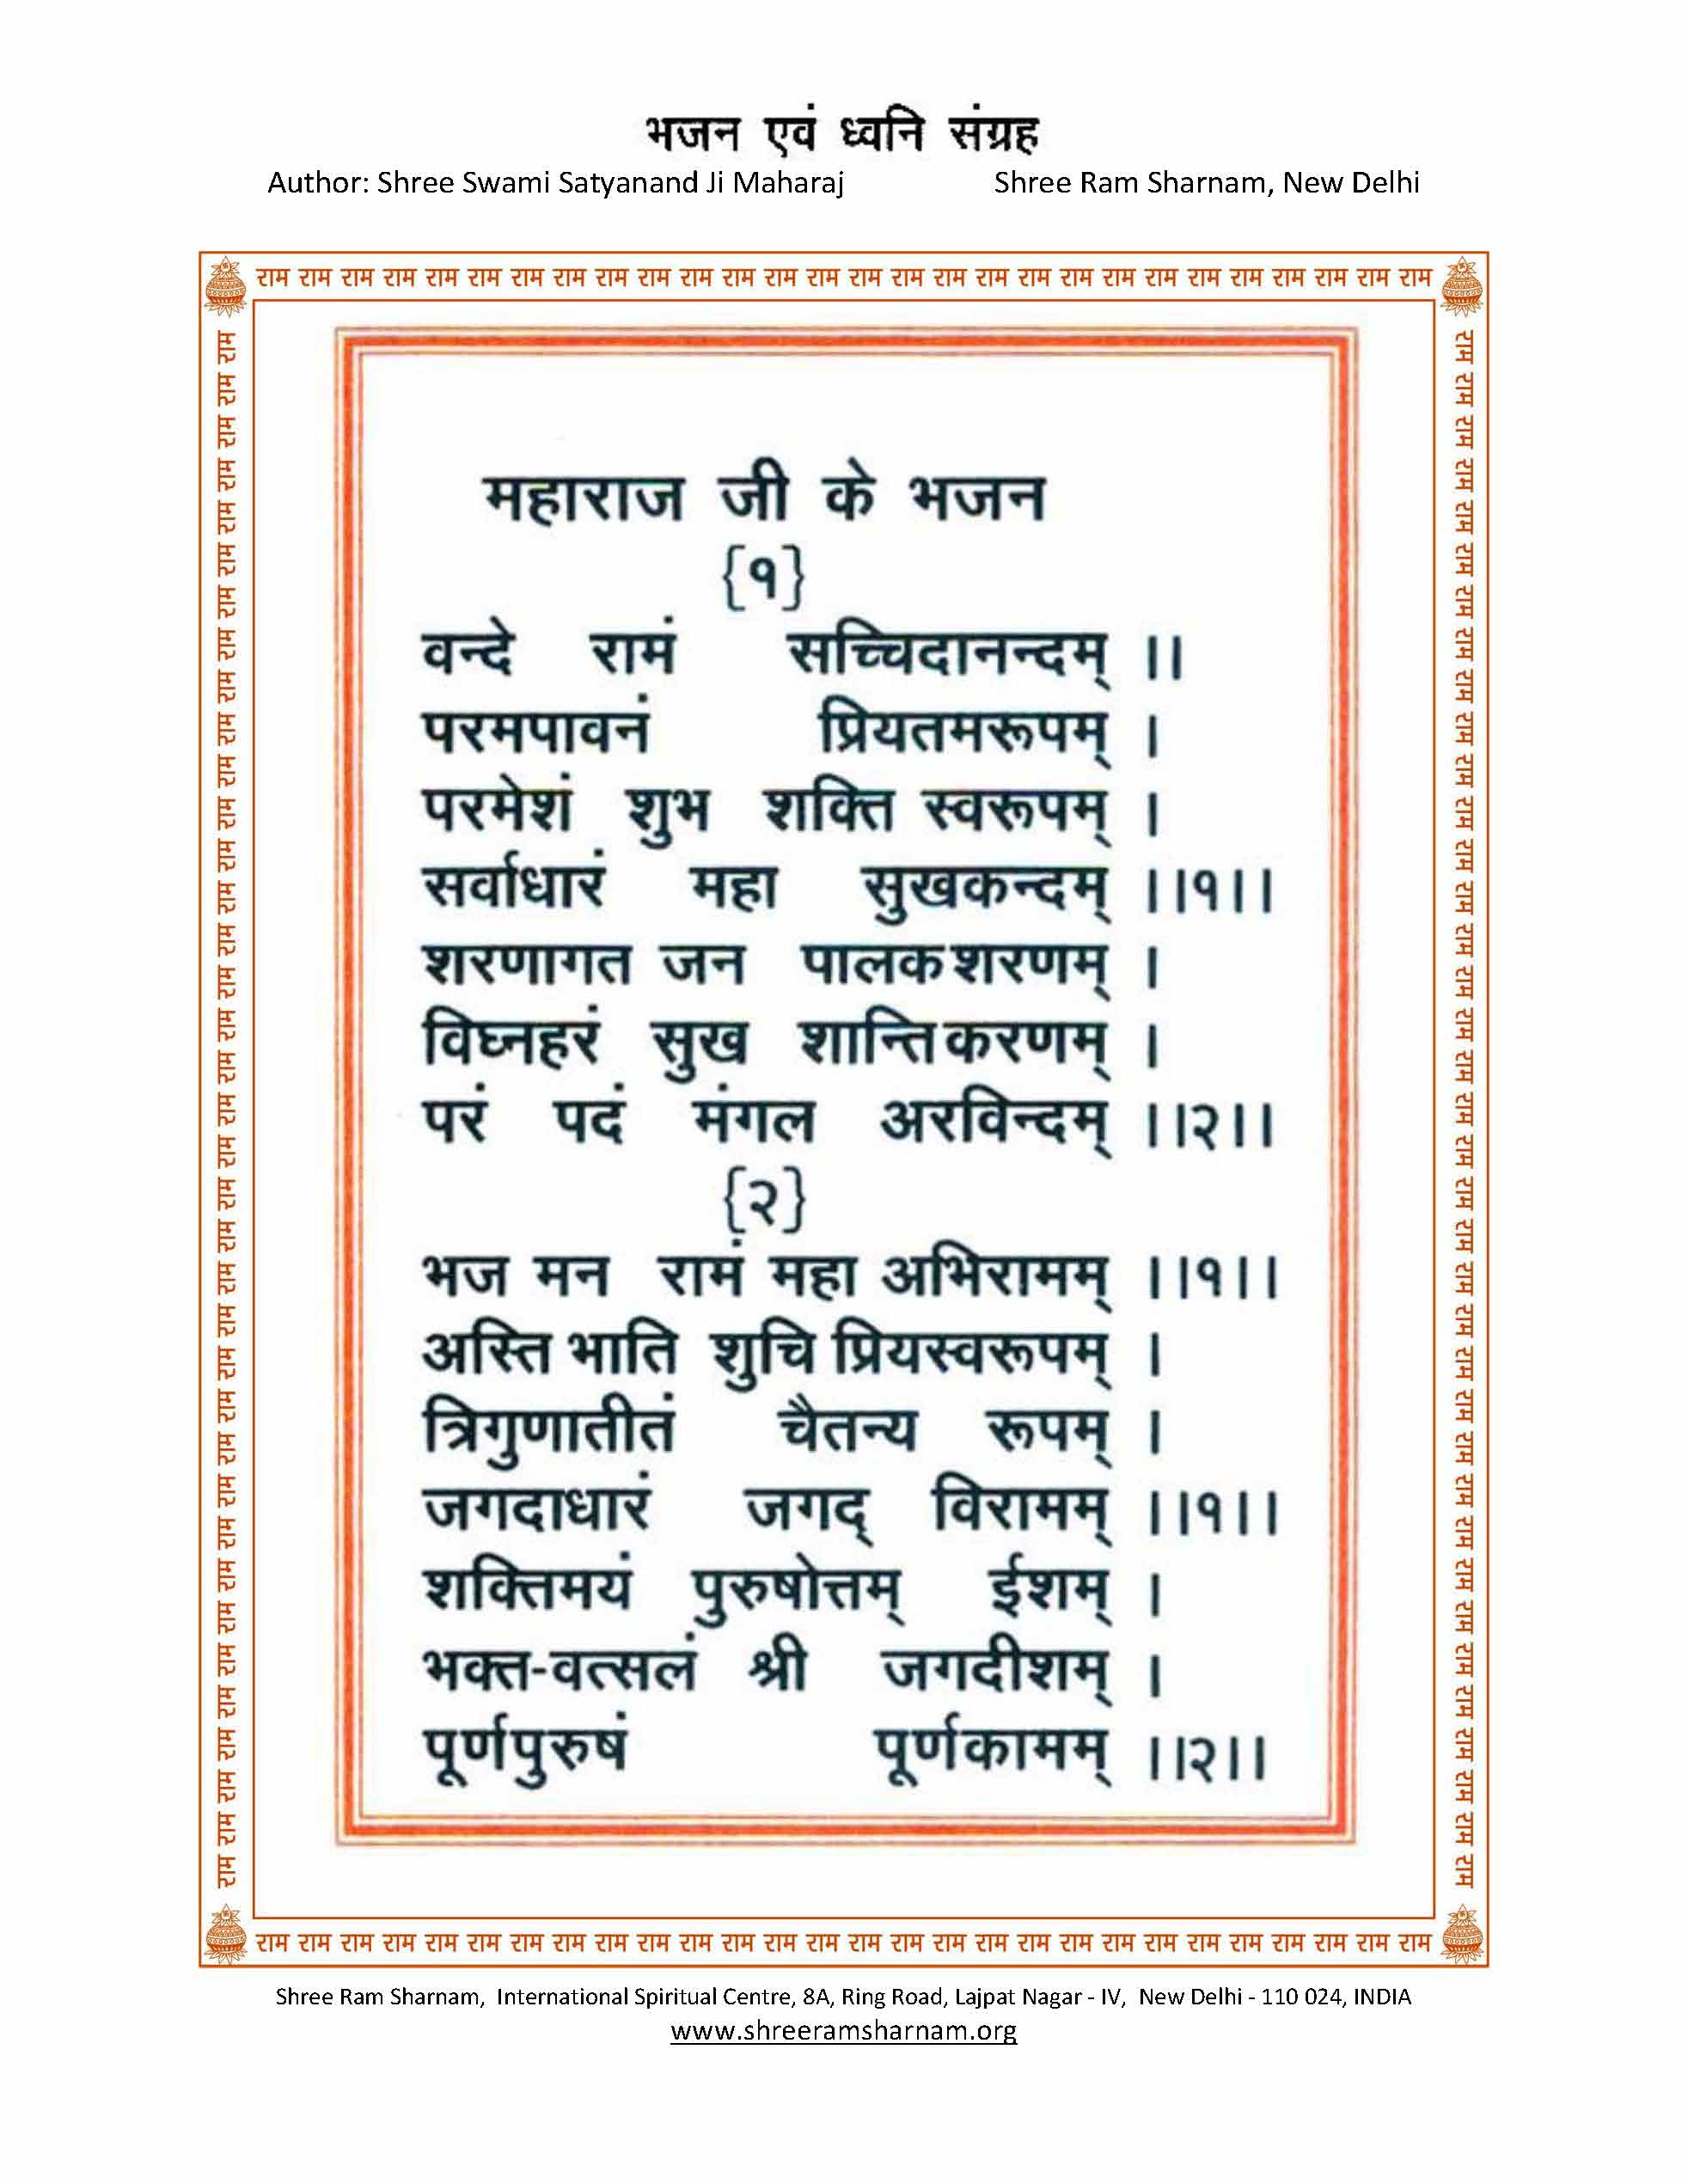 भजन एवं ध्वनि संग्रह
Author: Shree Swami Satyanand Ji Maharaj Shree Ram Sharnam, New Delhi
राम राम राम राम राम राम राम राम राम राम राम राम राम राम राम राम राम राम राम राम राम राम राम राम राम राम राम राम
महाराज जी के भजन
{१}
वन्दे रामं सच्चिदानन्दम् ।।
परमपावनं प्रियतमरूपम् ।
परमेशं शुभ शक्ति स्वरूपम् ।
सर्वाधारं महा सुखकन्दम् ।।१।।
शरणागत जन पालकशरणम् ।
विघ्नहरं सुख शान्तिकरणम् ।
परं पदं मंगल अरविन्दम् ।।२।।
{२}
भज मन रामं महा अभिरामम् ।।१।।
अस्ति भाति शुचि प्रियस्वरूपम् ।
त्रिगुणातीतं चैतन्य रूपम् ।
जगदाधारं जगद् विरामम् ।।१।।
शक्तिमयं पुरुषोत्तम् ईशम् ।
भक्त-वत्सलं श्री जगदीशम् ।
पूर्णपुरुषं पूर्णकामम् ।।२।।
राम राम राम राम राम राम राम राम राम राम राम राम राम राम राम राम राम राम राम राम राम राम राम राम राम राम राम राम राम राम राम राम राम राम राम राम राम
राम राम राम राम राम राम राम राम राम राम राम राम राम राम राम राम राम राम राम राम राम राम राम राम राम राम राम राम राम राम राम राम राम राम राम राम राम
राम राम राम राम राम राम राम राम राम राम राम राम राम राम राम राम राम राम राम राम राम राम राम राम राम राम राम राम
Shree Ram Sharnam, International Spiritual Centre, 8A, Ring Road, Lajpat Nagar - IV, New Delhi - 110 024, INDIA
www.shreeramsharnam.org